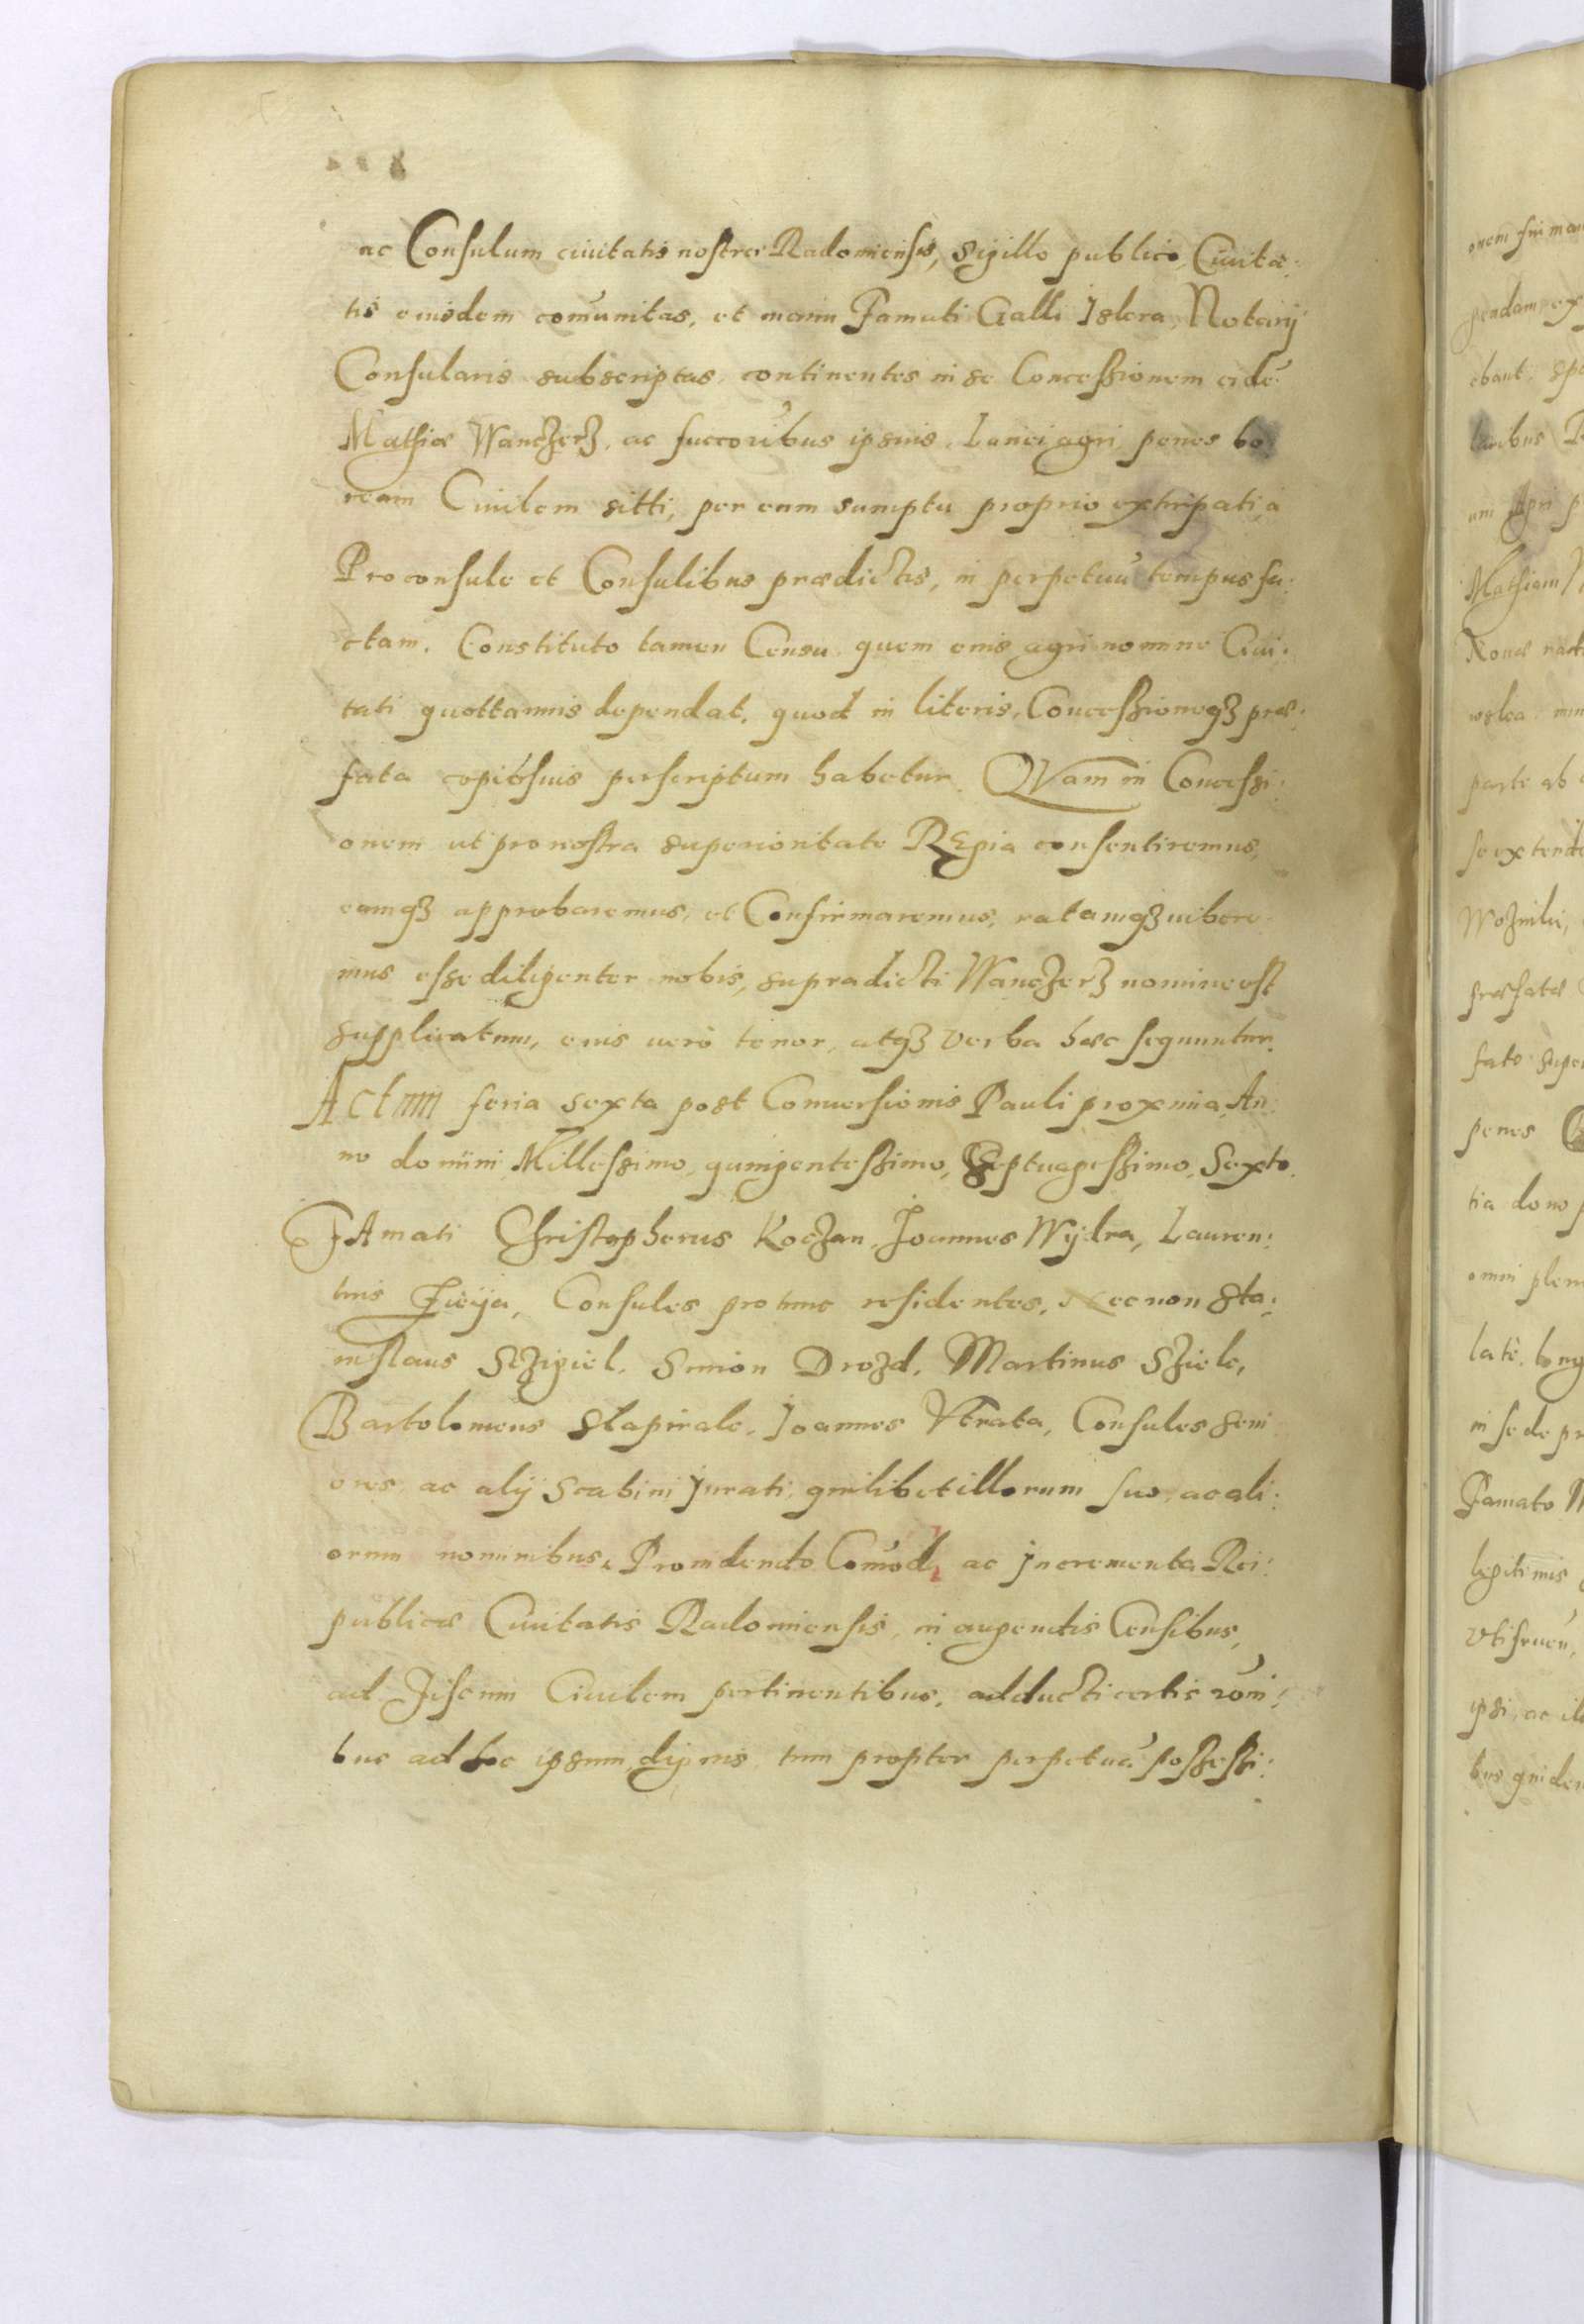 ac Consulum ciuitatis nostræ Radomiensis, Sigillo publico, Ciuita:
tis eiusdem com̃unitas, et manu Famati Galli Islera, Notarij
Consularis subscriptas continentes in se Concessionem eidẽ
Mathiæ Wanczerz, ac succoribus ipsius, Lanei agri penes bo
ream Ciuilem sitti, per eum sumptu proprio extirpati, a
Proconsule et Consulibus prædictis, in perpetuũ tempus fa:
ctam. Constituto tamen Censu quem eius agri nomine Ciui:
tati quottannis dependat, quod in literis, Concessioneqȝ præ:
fata copiosius perscriptum habetur. QVam in Concessi:
onem ut pro nostra superioritate REgia consentiremus,
eamqȝ approbaremus, et Confirmaremus, ratamqȝ uibere
mus esse diligenter nobis, supradicti Wanczerz nomine est
supplicatum, cuius uero tenor, atqȝ verba hæc sequuntur.
Actum feria sexta post Conuersionis Pauli proxima, An:
no domini Millessimo, quingentessimo, Septuagessimo, Sexto.
FAmati Christopherus Koczan, Joannes Wydra, Lauren:
tius Jicija, Consules pro tunc residentes, Necnon Sta:
nislaus Sczigiel, Simon Drozd, Martinus Sziele,
Bartolomeus Stapirale, Joannes Vtrata, Consules Seni
ores ac alij Scabini Jurati, quilibet illorum suo, ac ali:
orum nominibus, Prouidendo Com̃od ac Jncrementa Rei:
publicæ Ciuitatis Radomiensis, in augendis Censibus,
ad Fiscum Ciuilem pertinentibus, adducti certis rõni:
bus ad hoc ipsum dignis tum propter perpetuã possessi: